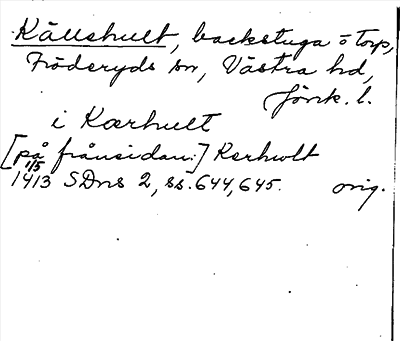 Källshult, backstuga o torp,
Fröderyds sn, Västra hd,
Jönk. l.
i Kærhult
[på frånsidan:] Kerhwlt
1413 1/5 SDns 2, ss. 644, 645. orig.